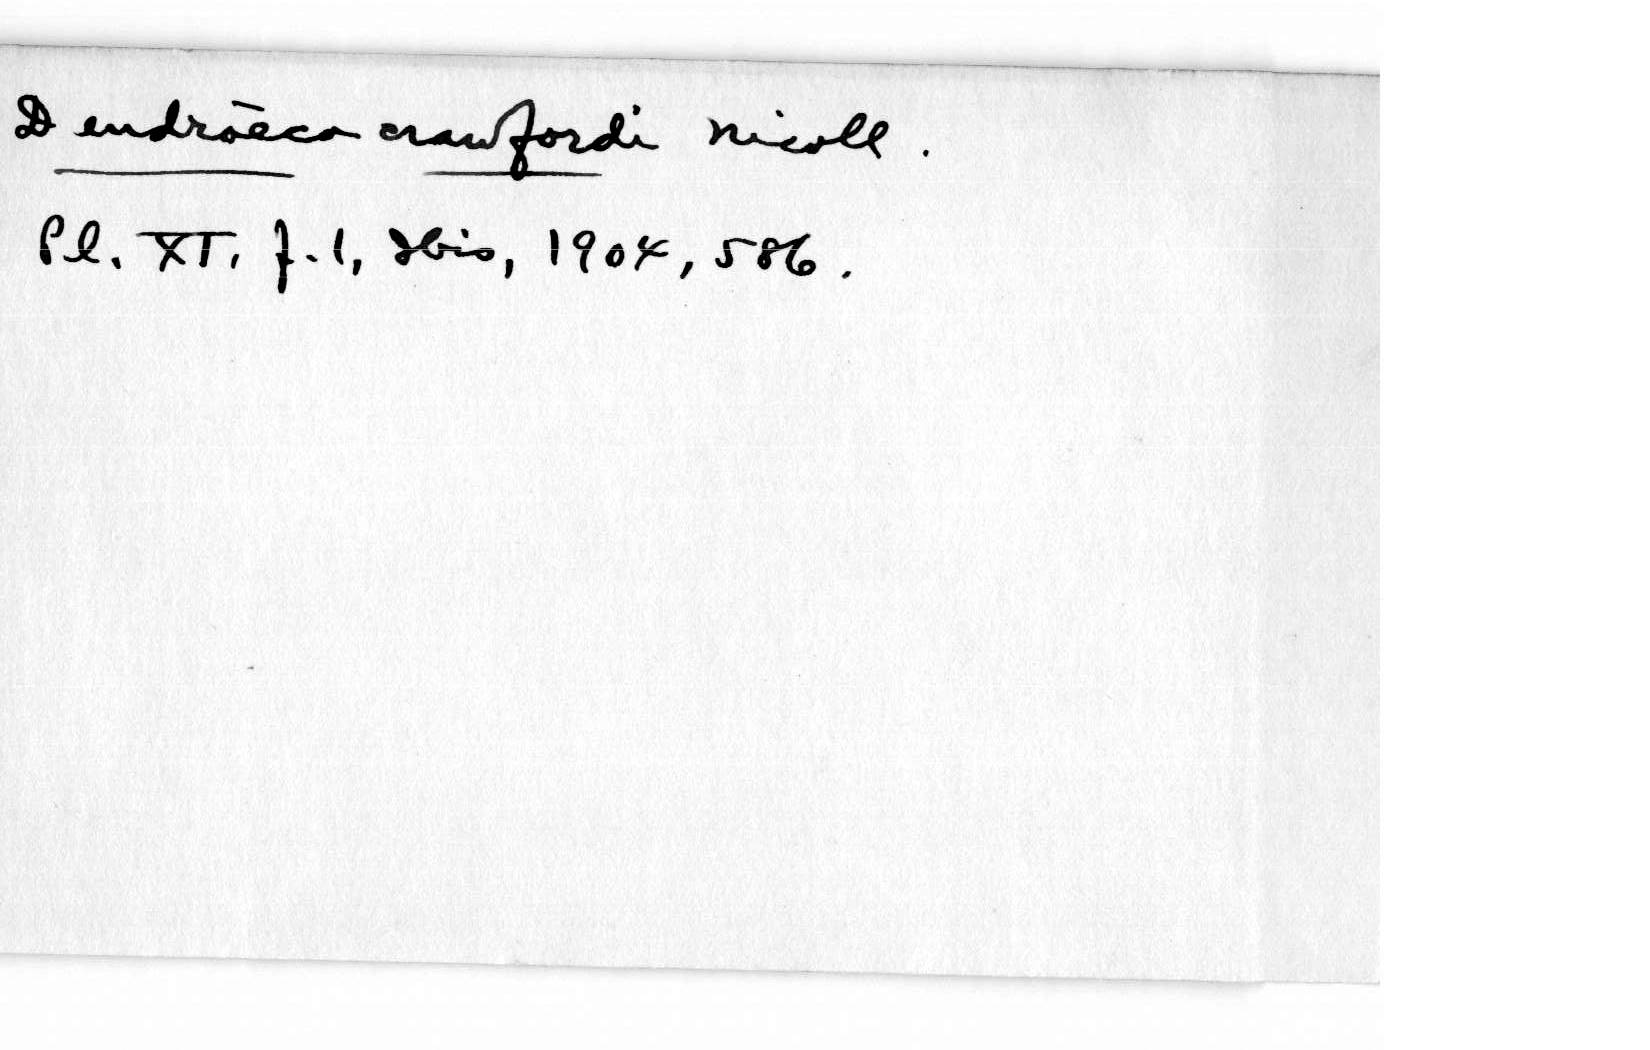 Dendroeca crawfordi Nicoll.
Pl. XI, f.1, Ibis, 1904, 586.